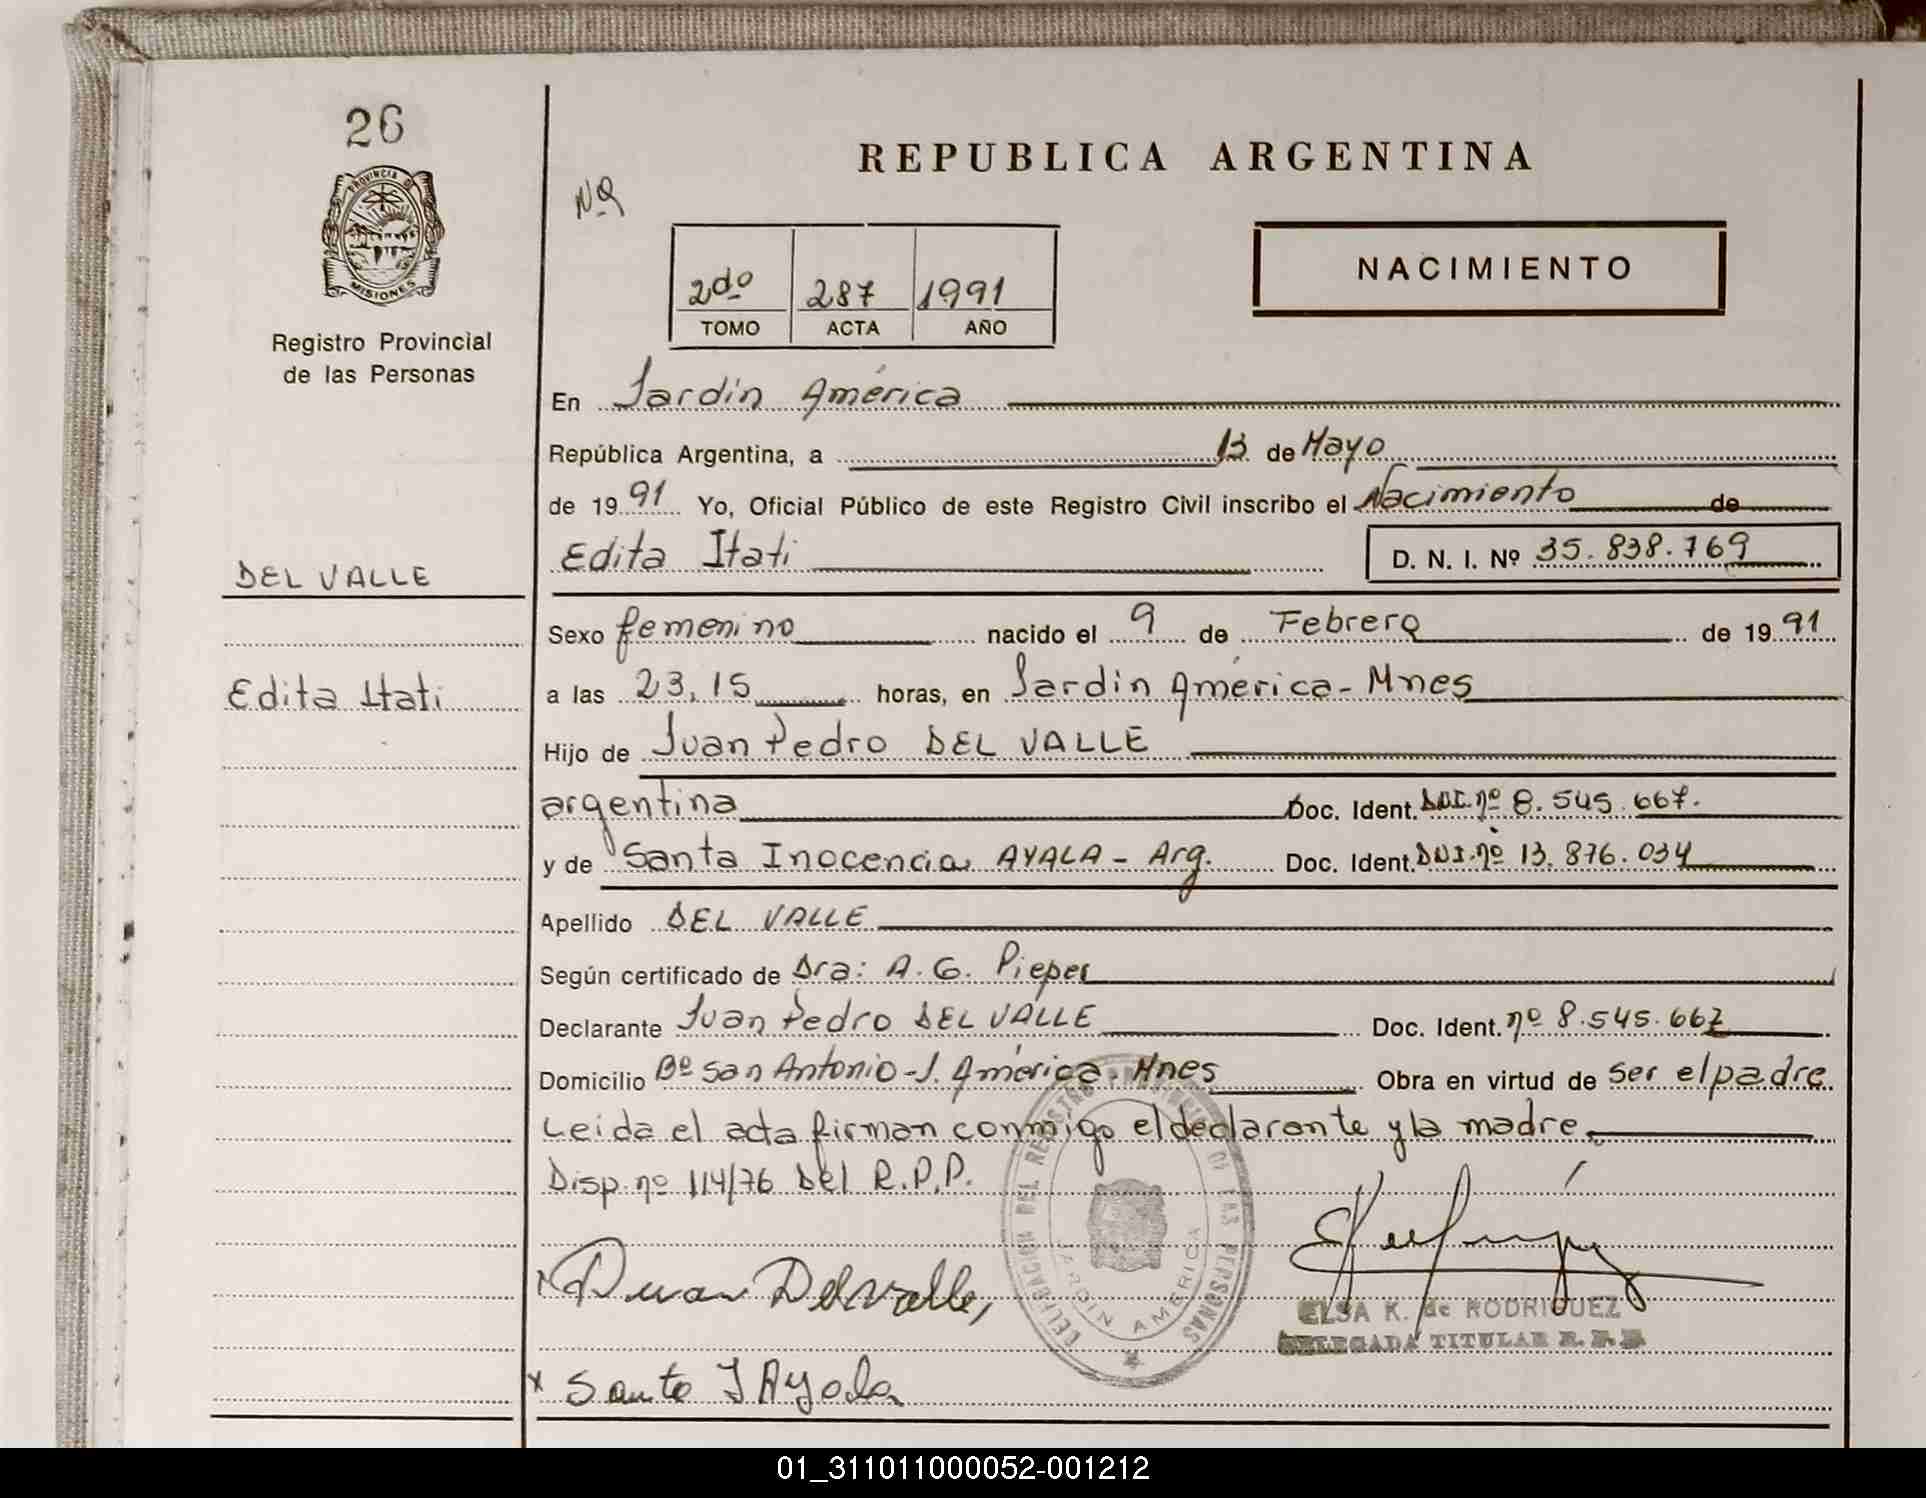 26
REPUBLICA ARGENTINA
Nº
PROVINCIA DE
MISIONES
2do 287 1991
TOMO ACTA AÑO
NACIMIENTO
Registro Provincial
de las Personas
En Jardín América
República Argentina, a 13 de Mayo
de 1991 Yo, Oficial Público de este Registro Civil inscribo el Nacimiento de
DEL VALLE
Edita Itati D. N. I. Nº 35.838.769
Sexo femenino nacido el 9 de Febrero de 1991
Edita Itati
a las 23,15 horas, en Jardín América - Mnes
Hijo de Juan Pedro DEL VALLE
argentina Doc. Ident. DNI. nº 8.545.667.
y de Santa Inocencia AYALA - Arg. Doc. Ident. DNI. nº 13.876.034
Apellido DEL VALLE
Según certificado de Dra: A. G. Pieper
Declarante Juan Pedro DEL VALLE Doc. Ident. nº 8.545.667
Domicilio Bº San Antonio - J. América - Mnes Obra en virtud de ser el padre
Leida el acta firman conmigo el declarante y la madre.
Disp. nº 114/76 Del R.P.P.
DELEGACION DEL REGISTRO PROVINCIAL DE LAS PERSONAS
JARDIN AMERICA
Juan Delvalle
ELSA K. de RODRIGUEZ
DELEGADA TITULAR R. P. P.
x Santa I Ayala
01_311011000052-001212